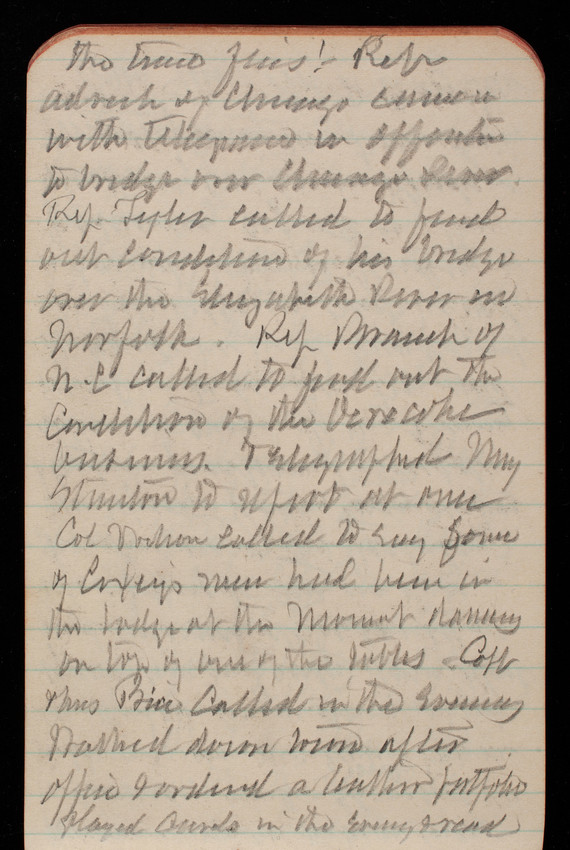 the time flies! Rep
Aldrich of Chicago came in
with telegrams in opposition
to bridge over Chicago River.
Rep. Tyler called to find
out condition of his bridge
over the Elizabeth River in
Norfolk. Rep Branch of
N.C called to find out the
Condition of the Ocracoke
business. Telegraphed Maj
Stanton to report at once
Col Wilson called to say some
of Coxeys men had been in
the lodge at the Monument dancing
on top of one of the tables Capt
& Mrs Price Called in the Evening
Walked down town after
office & ordered a leather portfolio
Played Cards in the Evening & read